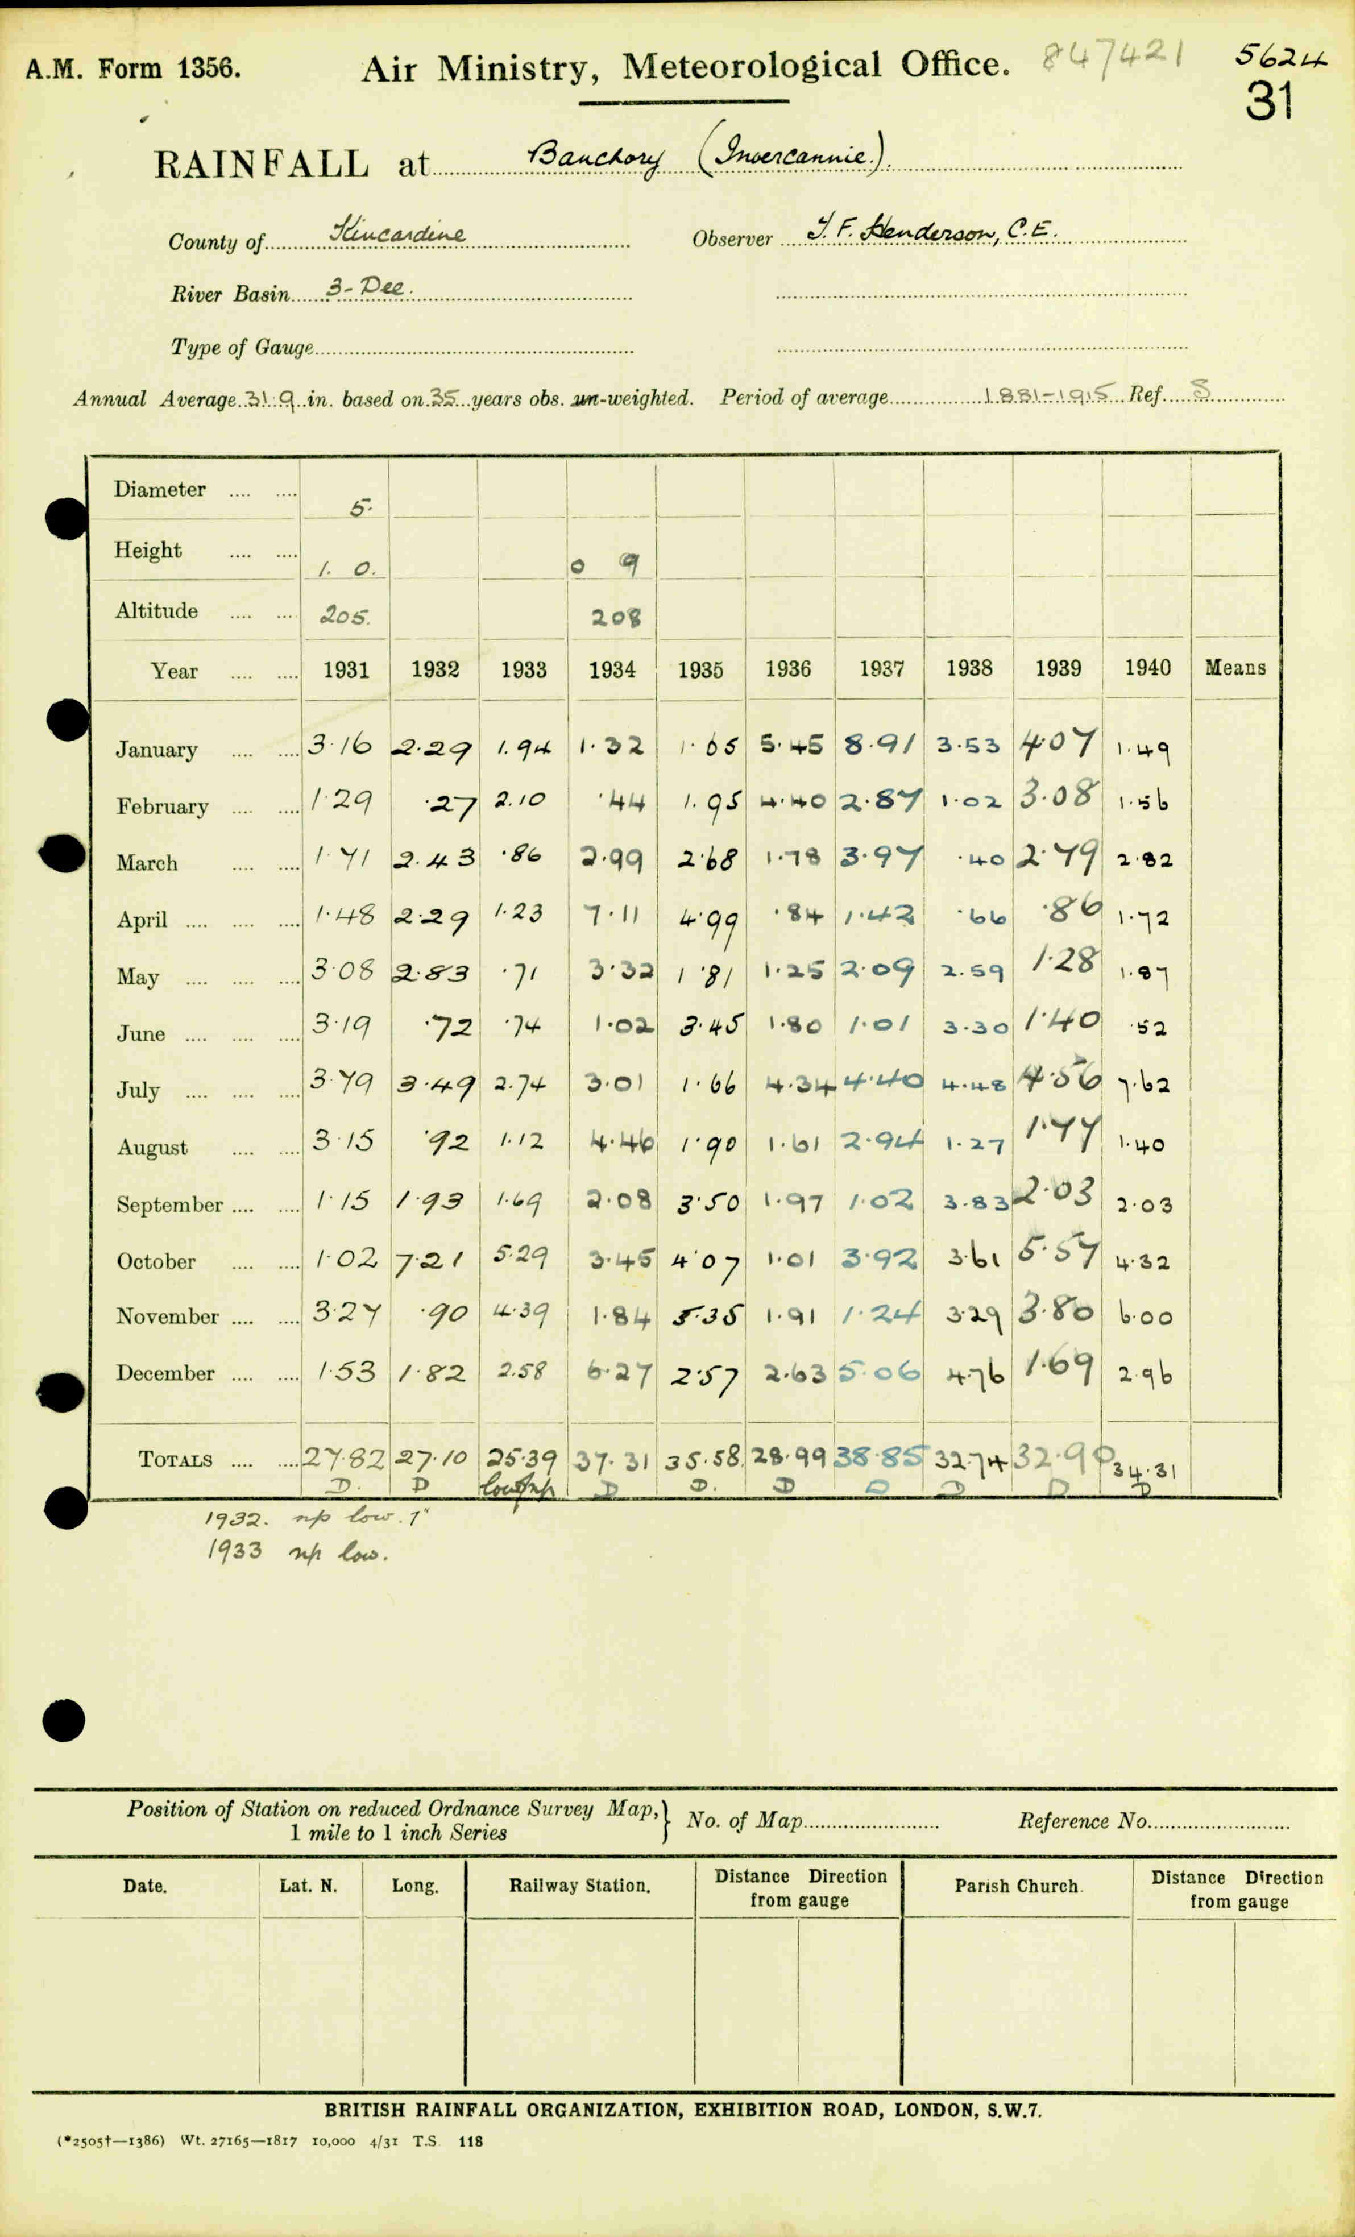 A.M. Form 1356. Air Ministry, Meteorological Office. 847421 5624
31
RAINFALL at Banchory (Invercannie.)
County of Kincardine Observer T. F. Henderson, C.E.
River Basin 3-Dee.
Type of Gauge
Annual Average 31.9 in. based on 35 years obs. un-weighted. Period of average 1881-1915 Ref. S
Diameter 5.
Height 1. 0. 0 9
Altitude 205. 208
Year 1931 1932 1933 1934 1935 1936 1937 1938 1939 1940 Means
January 3.16 2.29 1.94 1.32 1.65 5.45 8.91 3.53 4.07 1.49
February 1.29 .27 2.10 .44 1.95 4.40 2.87 1.02 3.08 1.56
March 1.71 2.43 .86 2.99 2.68 1.78 3.97 .40 2.79 2.82
April 1.48 2.29 1.23 7.11 4.99 .84 1.42 .66 .86 1.72
May 3.08 2.83 .71 3.32 1.81 1.25 2.09 2.59 1.28 1.87
June 3.19 .72 .74 1.02 3.45 1.80 1.01 3.30 1.40 .52
July 3.79 3.49 2.74 3.01 1.66 4.34 4.40 4.48 4.56 7.62
August 3.15 .92 1.12 4.46 1.90 1.61 2.94 1.27 1.77 1.40
September 1.15 1.93 1.69 2.08 3.50 1.97 1.02 3.83 2.03 2.03
October 1.02 7.21 5.29 3.45 4.07 1.01 3.92 3.61 5.57 4.32
November 3.27 .90 4.39 1.84 5.35 1.91 1.24 3.29 3.80 6.00
December 1.53 1.82 2.58 6.27 2.57 2.63 5.06 4.76 1.69 2.96
TOTALS 27.82 27.10 25.39 37.31 35.58 28.99 38.85 32.74 32.90 34.31
D. D low D D. D D D D D
1932. np low. 1"
1933 np low.
Position of Station on reduced Ordnance Survey Map,} No. of Map Reference No.
1 mile to 1 inch Series
Date. Lat. N. Long. Railway Station. Distance Direction from gauge Parish Church. Distance Direction from gauge
BRITISH RAINFALL ORGANIZATION, EXHIBITION ROAD, LONDON, S.W.7.
(*2505†—1386) Wt. 27165—1817 10,000 4/31 T.S. 118